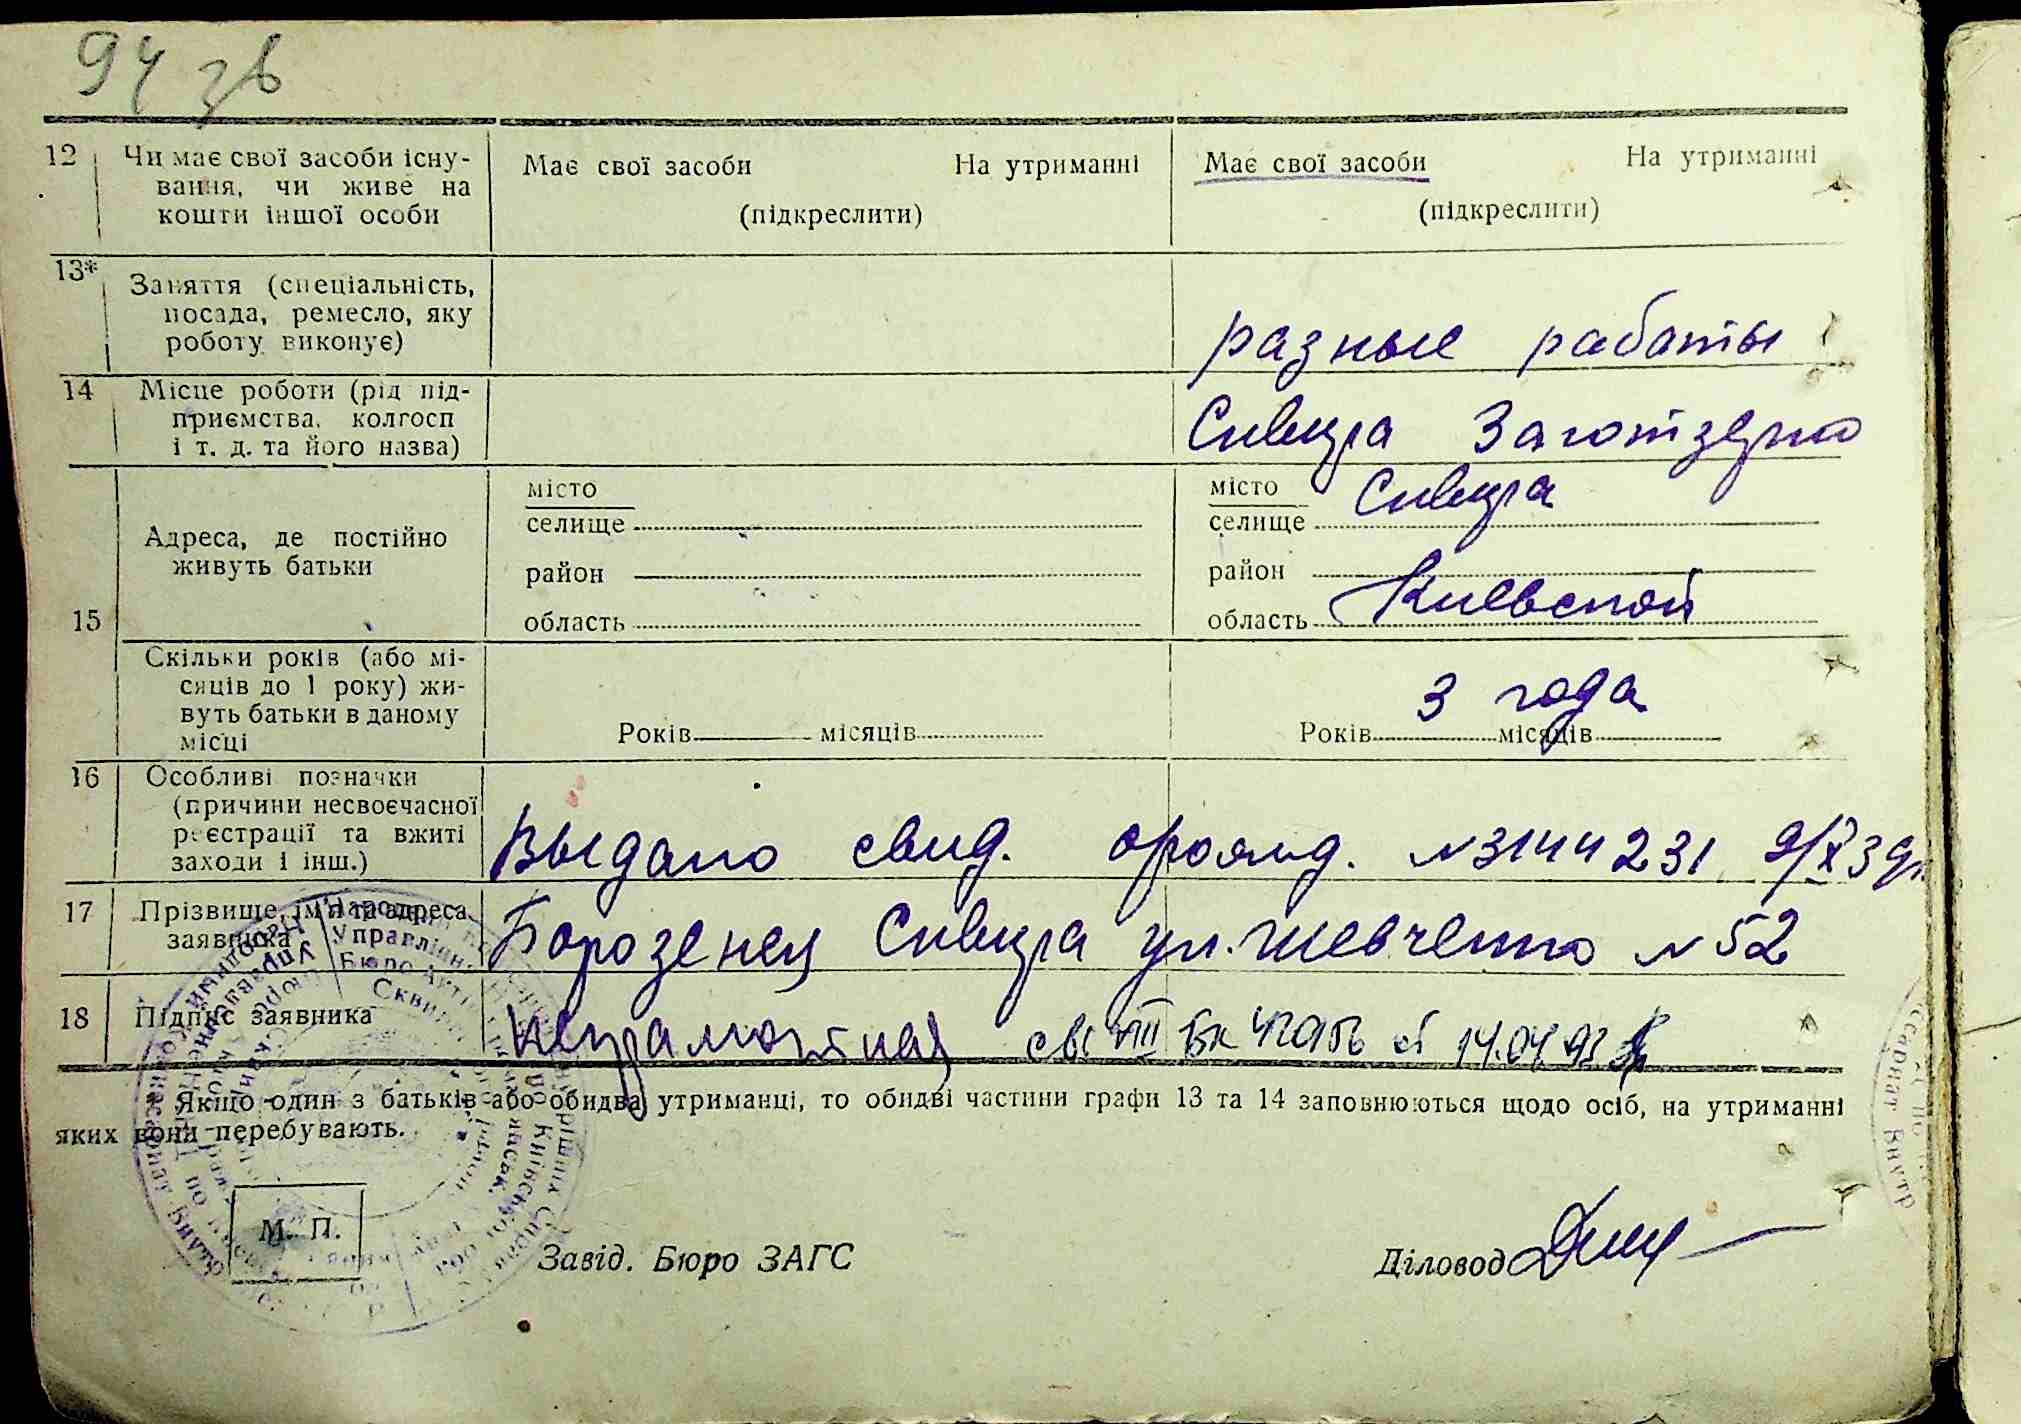 94 зв
12 Чи має свої засоби існу-
вання, чи живе на
кошти іншої особи
Має свої засоби На утриманні
(підкреслити)
Має свої засоби На утриманні
(підкреслити)
13* Заняття (спеціальність,
посада, ремесло, яку
роботу виконує)
разные работы
14 Місце роботи (рід під-
приємства, колгосп
і т. д. та його назва)
Сквира Заготзерно
15
Адреса, де постійно
живуть батьки
місто
селище
район
область
місто Сквира
селище
район
область Киевской
Скільки років (або мі-
сяців до 1 року) жи-
вуть батьки в даному
місці
Років місяців
3 года
Років місяців
16 Особливі позначки
(причини несвоєчасної
реєстрації та вжиті
заходи і інш.)
Выдано свид. №3144231 9/X 39г.
17 Прізвище, ім'я та адреса
заявника
Борозенец Сквира ул. Шевченко №52
18 Підпис заявника
Неграмотная 14.04.93
Якщо один з батьків або обидва утриманці, то обидві частини графи 13 та 14 заповнюються щодо осіб, на утриманні
яких вони перебувають.
М. П.
Завід. Бюро ЗАГС
Діловод